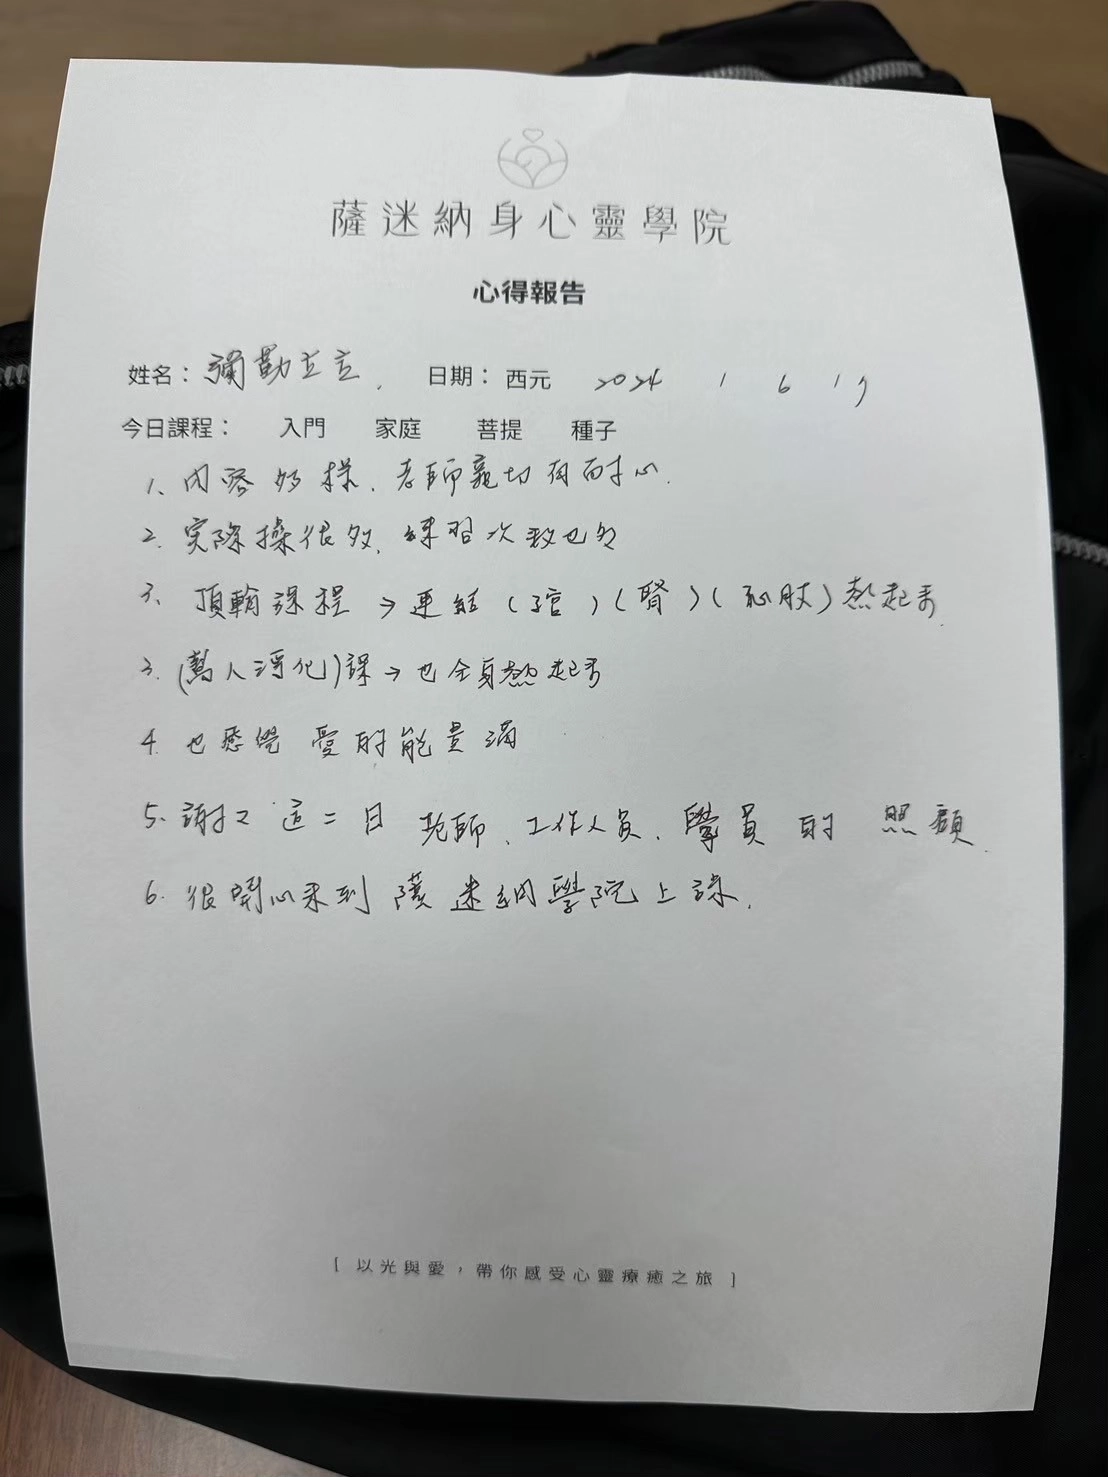 薩迷納身心靈學院
心得報告
姓名： 彌勒立立. 日期： 西元 2024 / 6 / 17
今日課程： 入門 家庭 菩提 種子
1、內容多樣. 老師親切有耐心.
2. 実際操很多. 練習次數也多
3. 頂輪課程 → 連結（宮）（腎）（）熱起來.
3. (萬人淨化)課 → 也全身熱起來
4. 也感覺 愛的能量滿
5. 謝々 這二日 老師、工作人員. 學員的 照顧.
6. 很開心來到 薩迷納學院上課.
[ 以光與愛，帶你感受心靈療癒之旅 ]